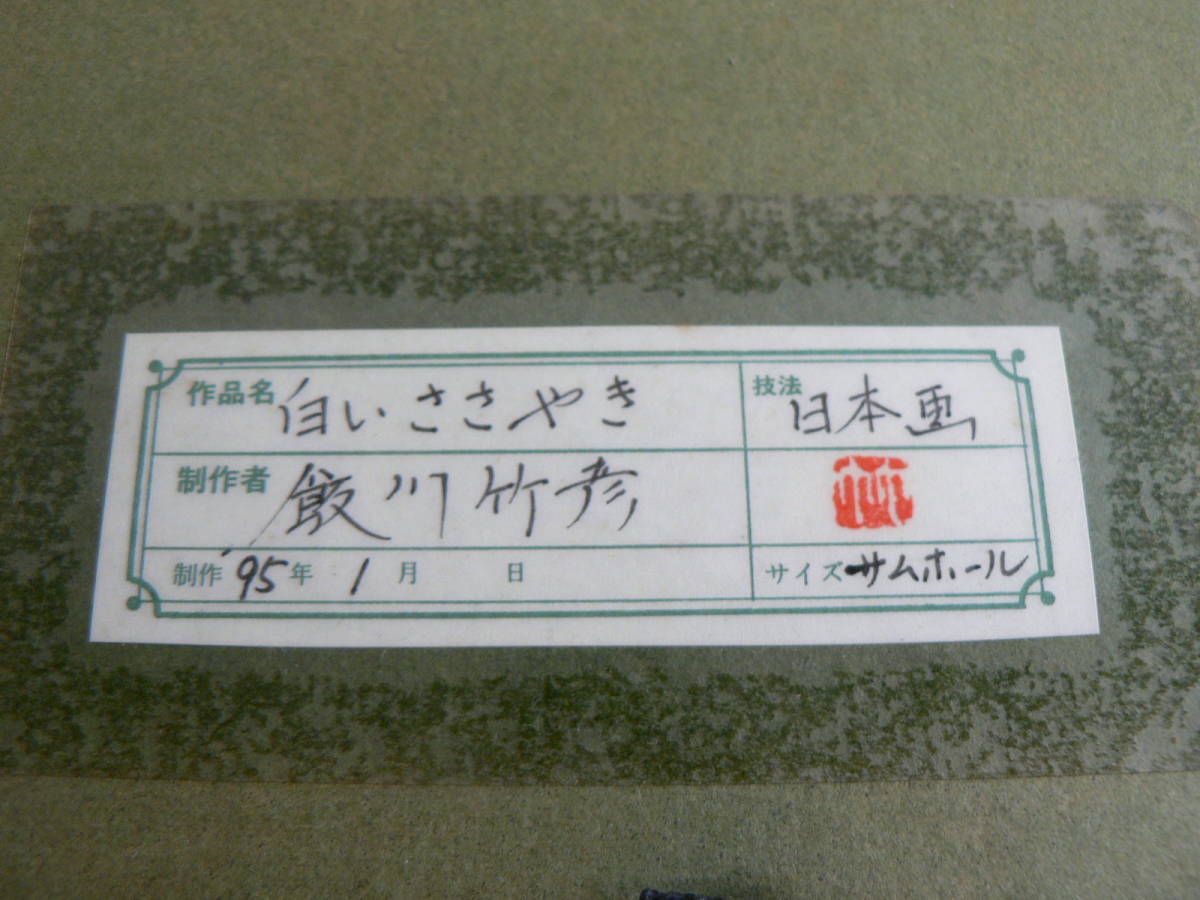 作品名 白いささやき 技法 日本画
制作者 飯川竹彦
制作 '95年 1月 日 サイズ サムホール